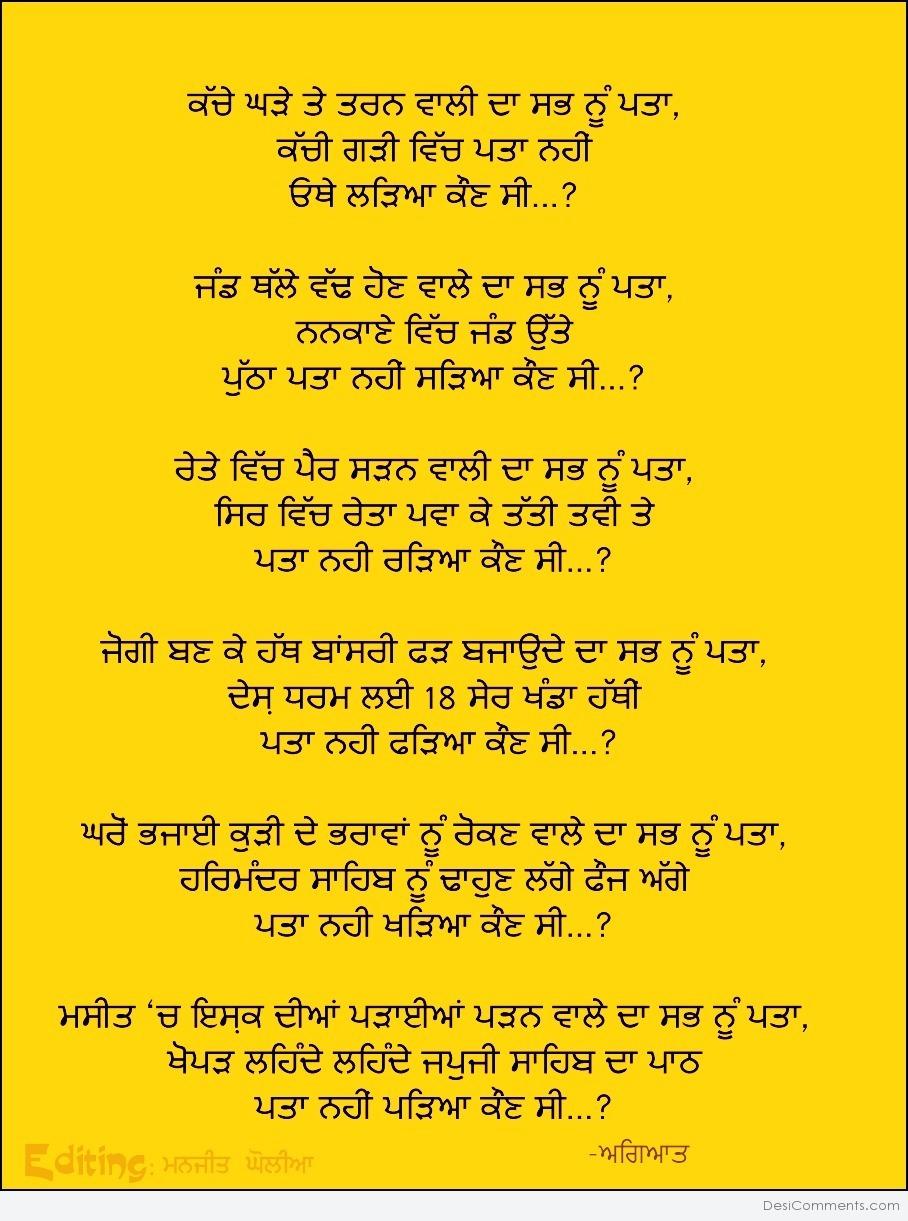 ਕੱਚੇ ਘੜੇ ਤੇ ਤਰਨ ਵਾਲੀ ਦਾ ਸਭ ਨੂੰ ਪਤਾ,
ਕੱਚੀ ਗੜੀ ਵਿੱਚ ਪਤਾ ਨਹੀਂ
ਓਥੇ ਲੜਿਆ ਕੌਣ ਸੀ...?
ਜੰਡ ਥੱਲੇ ਵੱਢ ਹੋਣ ਵਾਲੇ ਦਾ ਸਭ ਨੂੰ ਪਤਾ,
ਨਨਕਾਣੇ ਵਿੱਚ ਜੰਡ ਉੱਤੇ
ਪੁੱਠਾ ਪਤਾ ਨਹੀਂ ਸੜਿਆ ਕੌਣ ਸੀ...?
ਰੇਤੇ ਵਿੱਚ ਪੈਰ ਸੜਨ ਵਾਲੀ ਦਾ ਸਭ ਨੂੰ ਪਤਾ,
ਸਿਰ ਵਿੱਚ ਰੇਤਾ ਪਵਾ ਕੇ ਤੱਤੀ ਤਵੀ ਤੇ
ਪਤਾ ਨਹੀ ਰੜਿਆ ਕੌਣ ਸੀ...?
ਜੋਗੀ ਬਣ ਕੇ ਹੱਥ ਬਾਂਸਰੀ ਫੜ ਬਜਾਉਂਦੇ ਦਾ ਸਭ ਨੂੰ ਪਤਾ,
ਦੇਸ਼ ਧਰਮ ਲਈ 18 ਸੇਰ ਖੰਡਾ ਹੱਥੀਂ
ਪਤਾ ਨਹੀ ਫੜਿਆ ਕੌਣ ਸੀ...?
ਘਰੋਂ ਭਜਾਈ ਕੁੜੀ ਦੇ ਭਰਾਵਾਂ ਨੂੰ ਰੋਕਣ ਵਾਲੇ ਦਾ ਸਭ ਨੂੰ ਪਤਾ,
ਹਰਿਮੰਦਰ ਸਾਹਿਬ ਨੂੰ ਢਾਹੁਣ ਲੱਗੇ ਫੌਜ ਅੱਗੇ
ਪਤਾ ਨਹੀ ਖੜਿਆ ਕੌਣ ਸੀ...?
ਮਸੀਤ ‘ਚ ਇਸ਼ਕ ਦੀਆਂ ਪੜਾਈਆਂ ਪੜਨ ਵਾਲੇ ਦਾ ਸਭ ਨੂੰ ਪਤਾ,
ਖੋਪੜ ਲਹਿੰਦੇ ਲਹਿੰਦੇ ਜਪੁਜੀ ਸਾਹਿਬ ਦਾ ਪਾਠ
ਪਤਾ ਨਹੀਂ ਪੜਿਆ ਕੌਣ ਸੀ...?
-ਅਗਿਆਤ
Editing: ਮਨਜੀਤ ਘੋਲੀਆ
DesiComments.com